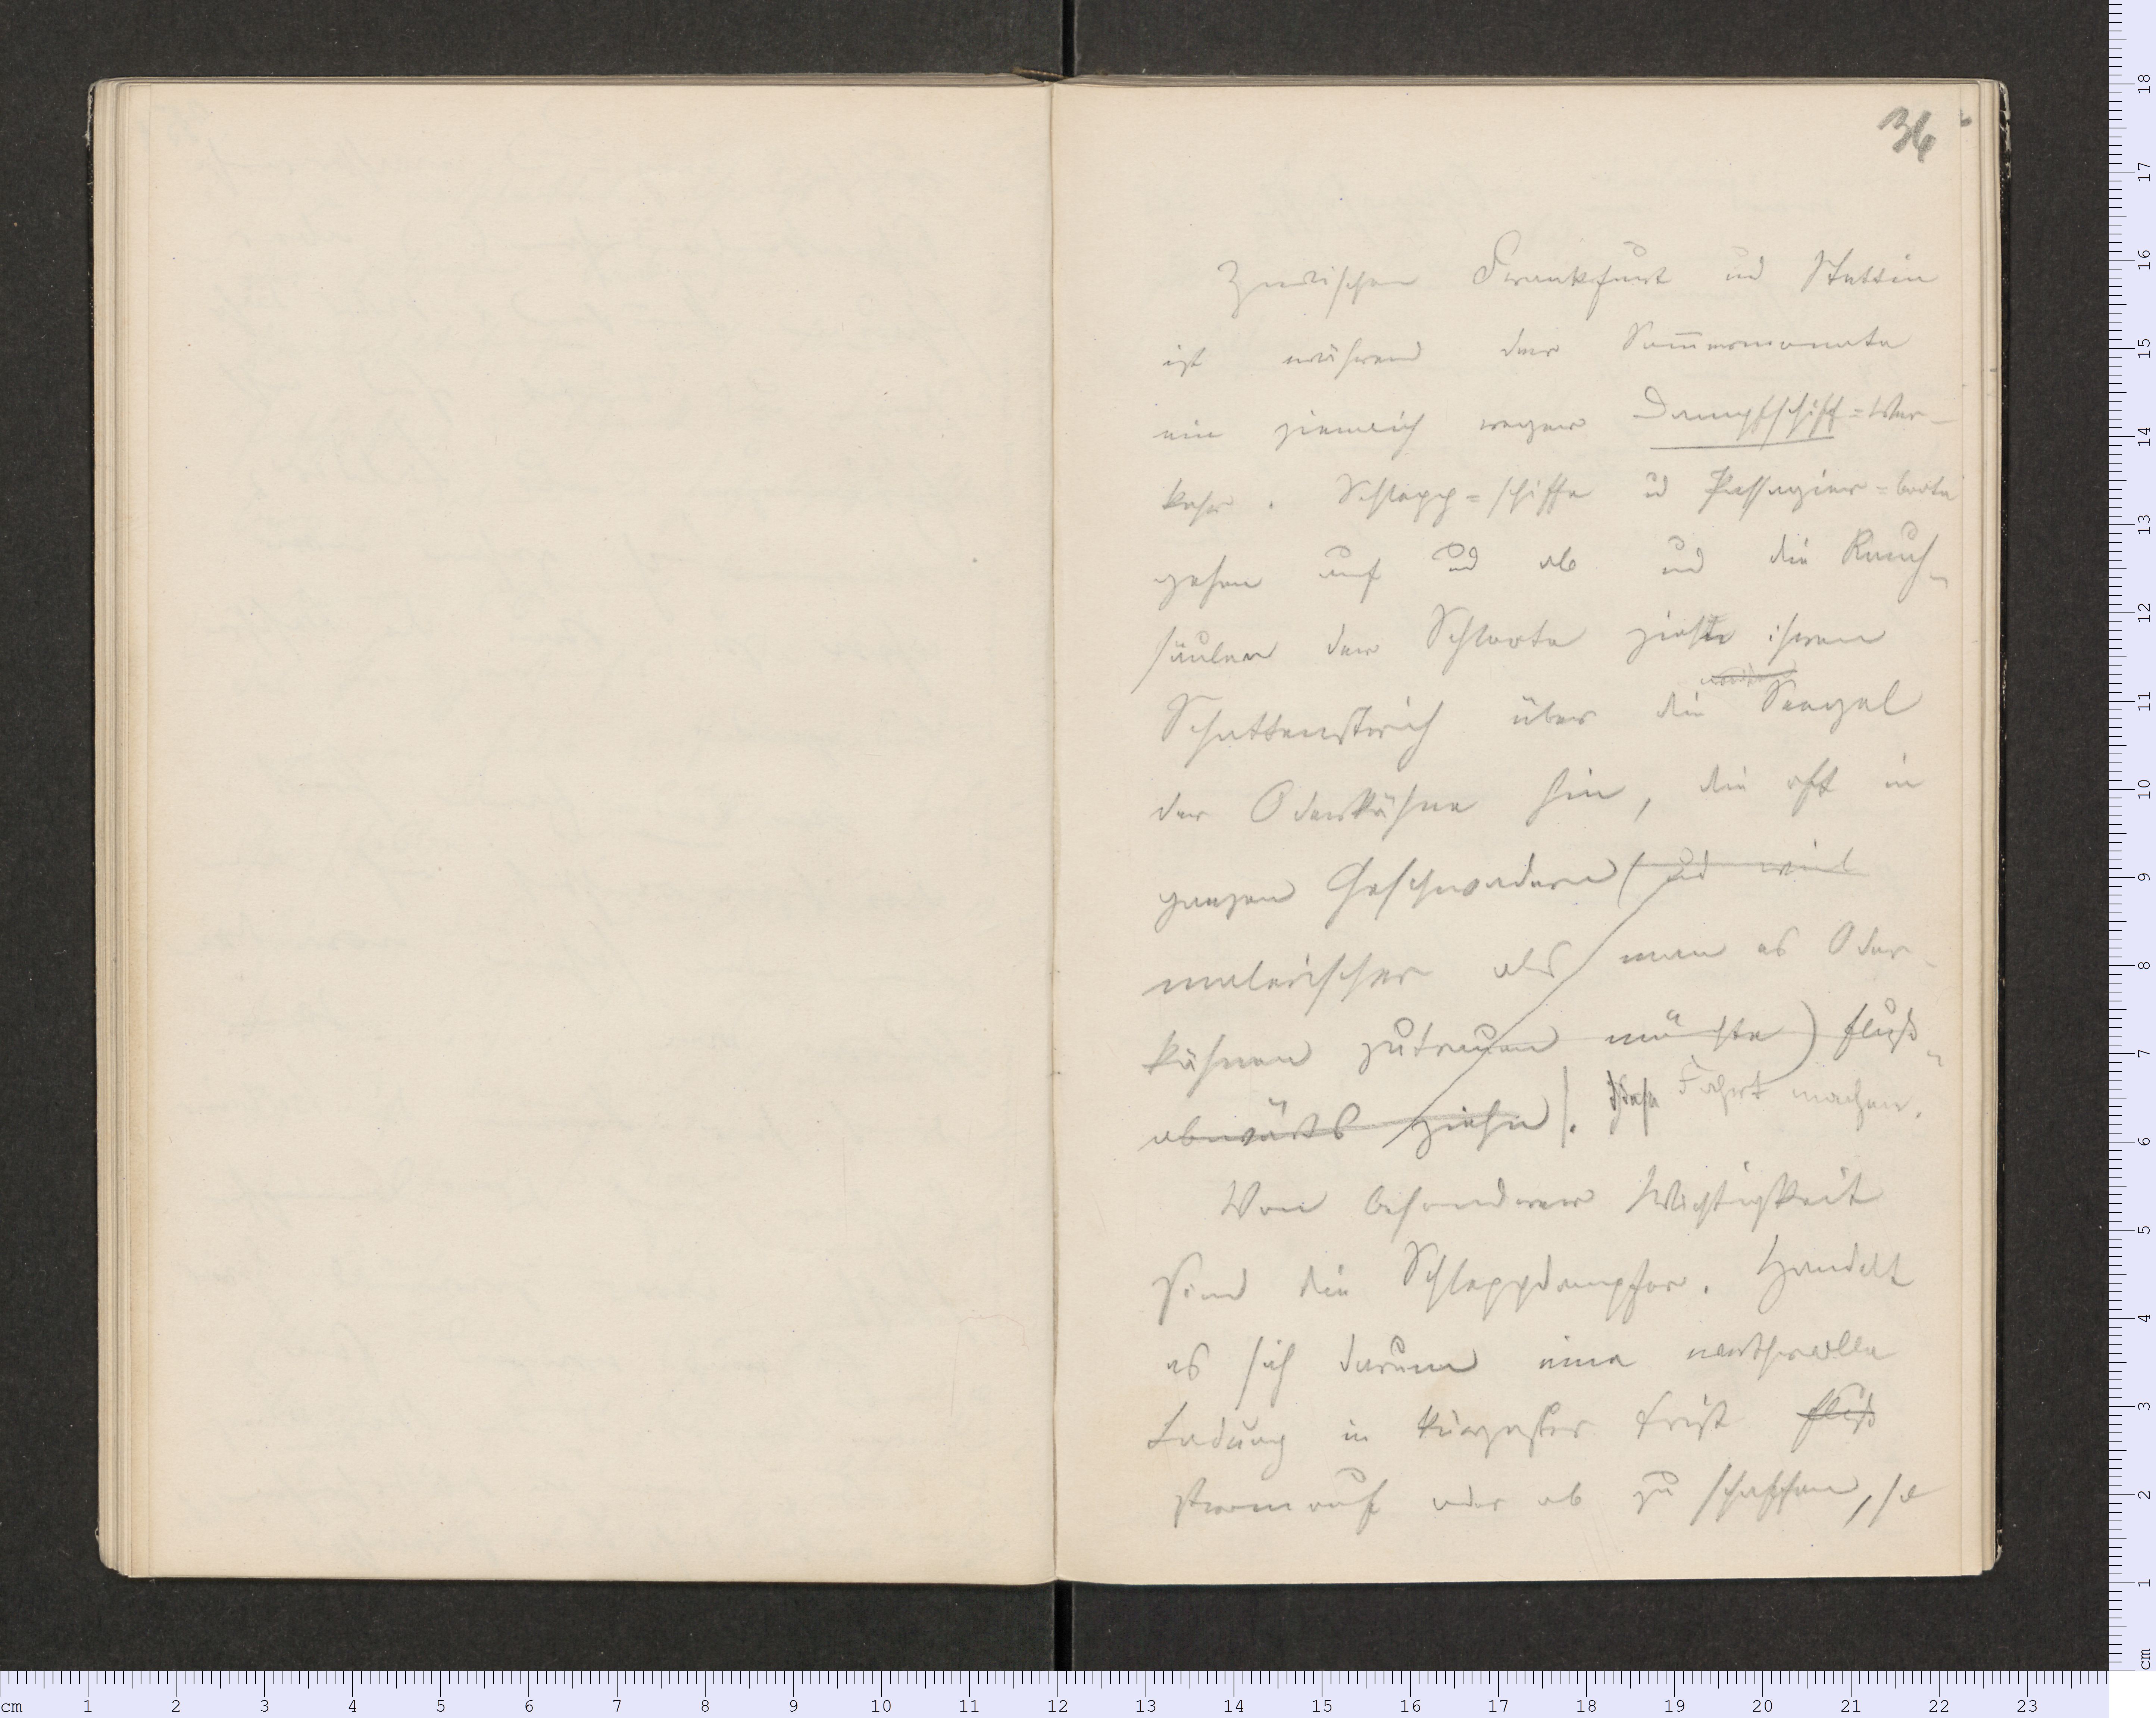 36
Zwischen Frankfurt und Stettin
ist während der Som̄ermonate
ein ziemlich reger Dampfschiff=Ver-
kehr. Schlepp=schiffe u Passagier=boote
gehen auf und ab und die Rauch-
säulen der Schlote ziehn ihren
Schattenstrich über die Seegel
der Oderkähne hin, die oft in
ganzen Geschwadern (und viel
malerischer als man es Oder-
kähnen zutrauen möchte) fluß-
abwärts ziehn). Fahrt machen.
Von besondrer Wichtigkeit
sind die Schleppdampfer. Handelt
es sich darum eine werthvolle
Ladung in kürzester Frist fluß
stromauf oder ab zu schaffen, so